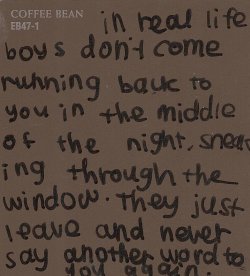 COFFEE BEAN
EB47-1
in real life
boys don't come
running back to
you in the middle
of the night, sneak
ing through the
window. They just
leave and never
say another word to
you again.